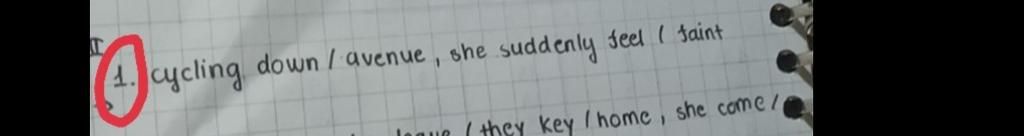 II
1. cycling down / avenue, she suddenly feel / faint
/ they key / home, she come /